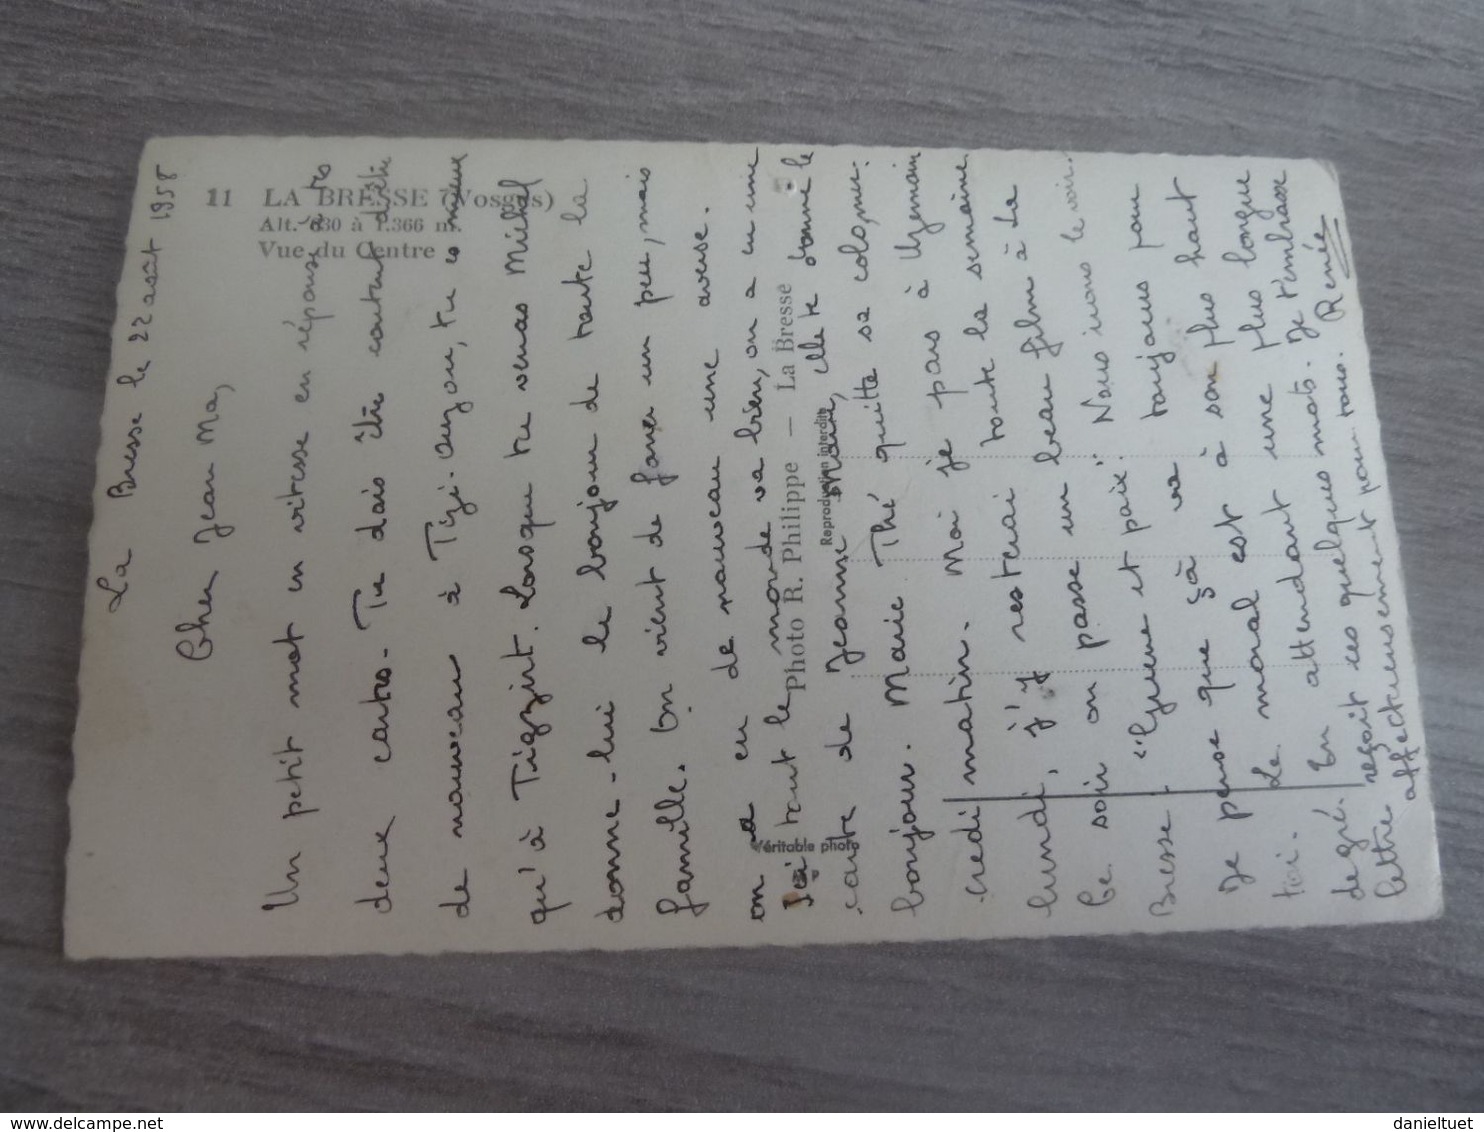 La Bresse le 22 août 1958
Cher Jean Ma,
Un petit mot en vitesse en réponse à tes
deux cartes. Tu dois être content d'être
de nouveau à Tizi-Ouzou, tu es mieux
qu'à Tigzirt. Lorsque tu verras Michel
donne-lui le bonjour de toute la
famille. On vient de faner un peu, mais
on a eu de nouveau une averse.
Ici tout le monde va bien, on a eu une
carte de Jeanne Marie, elle te donne le
bonjour. Marie Thé quitte sa colo, mer-
credi matin. Moi je pars à Uzemain
lundi, j'y resterai toute la semaine.
Ce soir on passe un beau film à La
Bresse, "Guerre et paix". Nous irons le voir.
Je pense que çà va toujours pour
toi. Le moral est à son plus haut
degré. En attendant une plus longue
lettre reçoit ces quelques mots. Je t'embrasse
affectueusement pour tous. Renée
11 LA BRESSE (Vosges)
Alt. 630 à 1.366 m.
Vue du Centre
Photo R. Philippe — La Bresse
Reproduction interdite
Véritable photo
delcampe.net
danieltuet